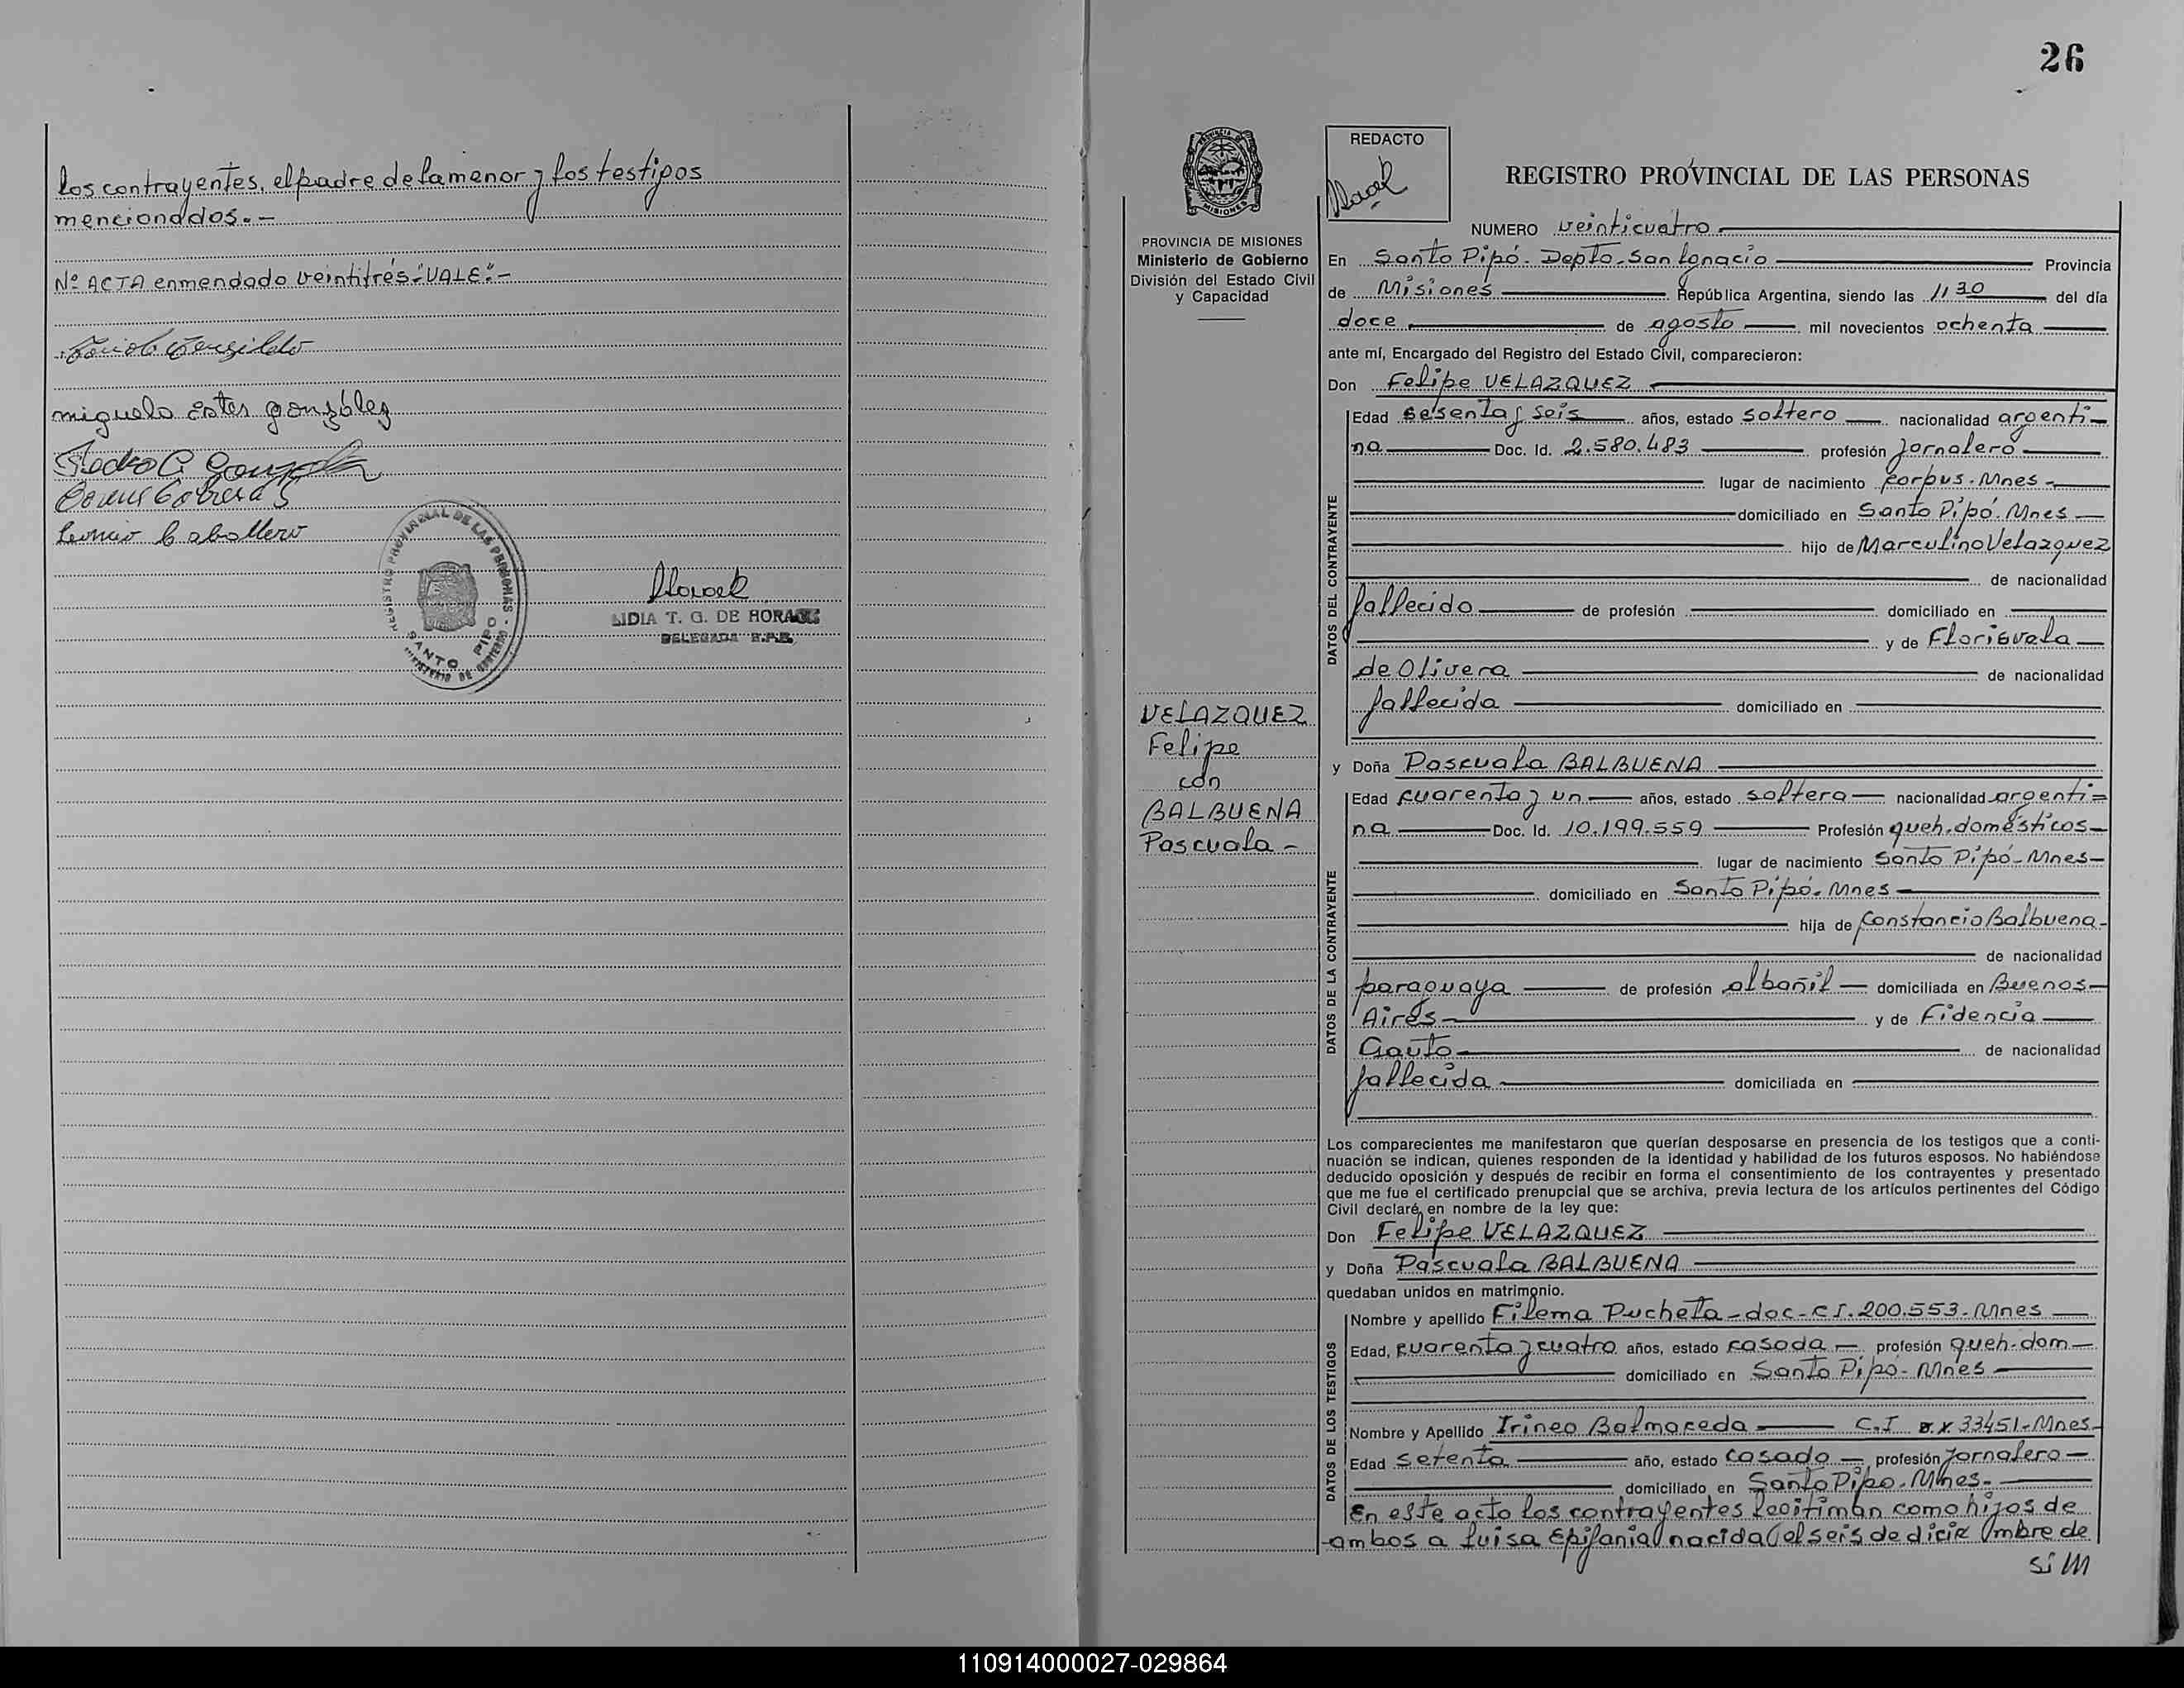 los contrayentes, el padre de la menor y los testigos
mencionados.-
Nº ACTA enmendado veintitrés "VALE".-
miguela Ester gonzález
Pedro G
Leoncio Caballero
REGISTRO PROVINCIAL DE LAS PERSONAS -
SANTO PIPO
MINISTERIO DE GOBIERNO
LIDIA T. G. DE
DELEGADA R.P.P.
26
REDACTO
REGISTRO PROVINCIAL DE LAS PERSONAS
MISIONES
PROVINCIA DE MISIONES
Ministerio de Gobierno
División del Estado Civil
y Capacidad
VELAZQUEZ
Felipe
con
BALBUENA
Pascuala -
NUMERO veinticuatro
En Santo Pipó. Depto. San Ignacio Provincia
de Misiones República Argentina, siendo las 11 30 del día
doce de agosto mil novecientos ochenta
ante mí, Encargado del Registro del Estado Civil, comparecieron:
Don Felipe VELAZQUEZ
DATOS DEL CONTRAYENTE
Edad sesenta y seis años, estado soltero nacionalidad argenti-
na Doc. Id. 2.580.483 profesión Jornalero
lugar de nacimiento Corpus. Mnes -
domiciliado en Santo Pipó. Mnes
hijo de Marculino Velazquez
de nacionalidad
fallecido de profesión domiciliado en
y de
de Olivera de nacionalidad
fallecida domiciliado en
y Doña Pascuala BALBUENA
DATOS DE LA CONTRAYENTE
Edad cuarenta y un años, estado soltera nacionalidad argenti=
na Doc. Id. 10.199.559 Profesión queh. domésticos
lugar de nacimiento Santo Pipó - Mnes
domiciliado en Santo Pipó. Mnes
hija de Constancio Balbuena
de nacionalidad
paraguaya de profesión albañil domiciliada en Buenos
Aires y de Fidencia
Gauto de nacionalidad
fallecida domiciliada en
Los comparecientes me manifestaron que querían desposarse en presencia de los testigos que a conti-
nuación se indican, quienes responden de la identidad y habilidad de los futuros esposos. No habiéndose
deducido oposición y después de recibir en forma el consentimiento de los contrayentes y presentado
que me fue el certificado prenupcial que se archiva, previa lectura de los artículos pertinentes del Código
Civil declaré en nombre de la ley que:
Don Felipe VELAZQUEZ
y Doña Pascuala BALBUENA
quedaban unidos en matrimonio.
DATOS DE LOS TESTIGOS
Nombre y apellido Filema Pucheta - doc - CI. 200.553 - Mnes
Edad, cuarenta y cuatro años, estado casada profesión queh. dom
domiciliado en Santo Pipó - Mnes
Nombre y Apellido Irineo Balmaceda C.I 33451 - Mnes
Edad setenta año, estado casado profesión Jornalero
domiciliado en Santo Pipo. Mnes.
En este acto los contrayentes legitiman como hijos de
ambos a Luisa Epifania nacida el seis de diciembre de
110914000027-029864